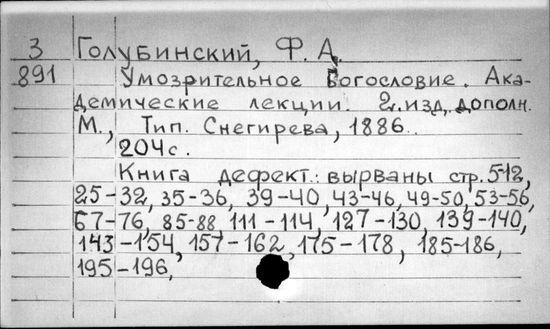 3 Голубинский, Ф. А.
891 Умозрительное Богословие. Ака-
демические лекции. 2. изд. дополн.
М., Тип. Снегирева, 1886.
204 с.
Книга дефект.: вырваны стр. 5-12,
25-32, 35-36, 39-40, 43-46, 49-50, 53-56,
67-76, 85-88, 111-114, 127-130, 139-140,
143-154, 157-162, 175-178, 185-186,
195-196,